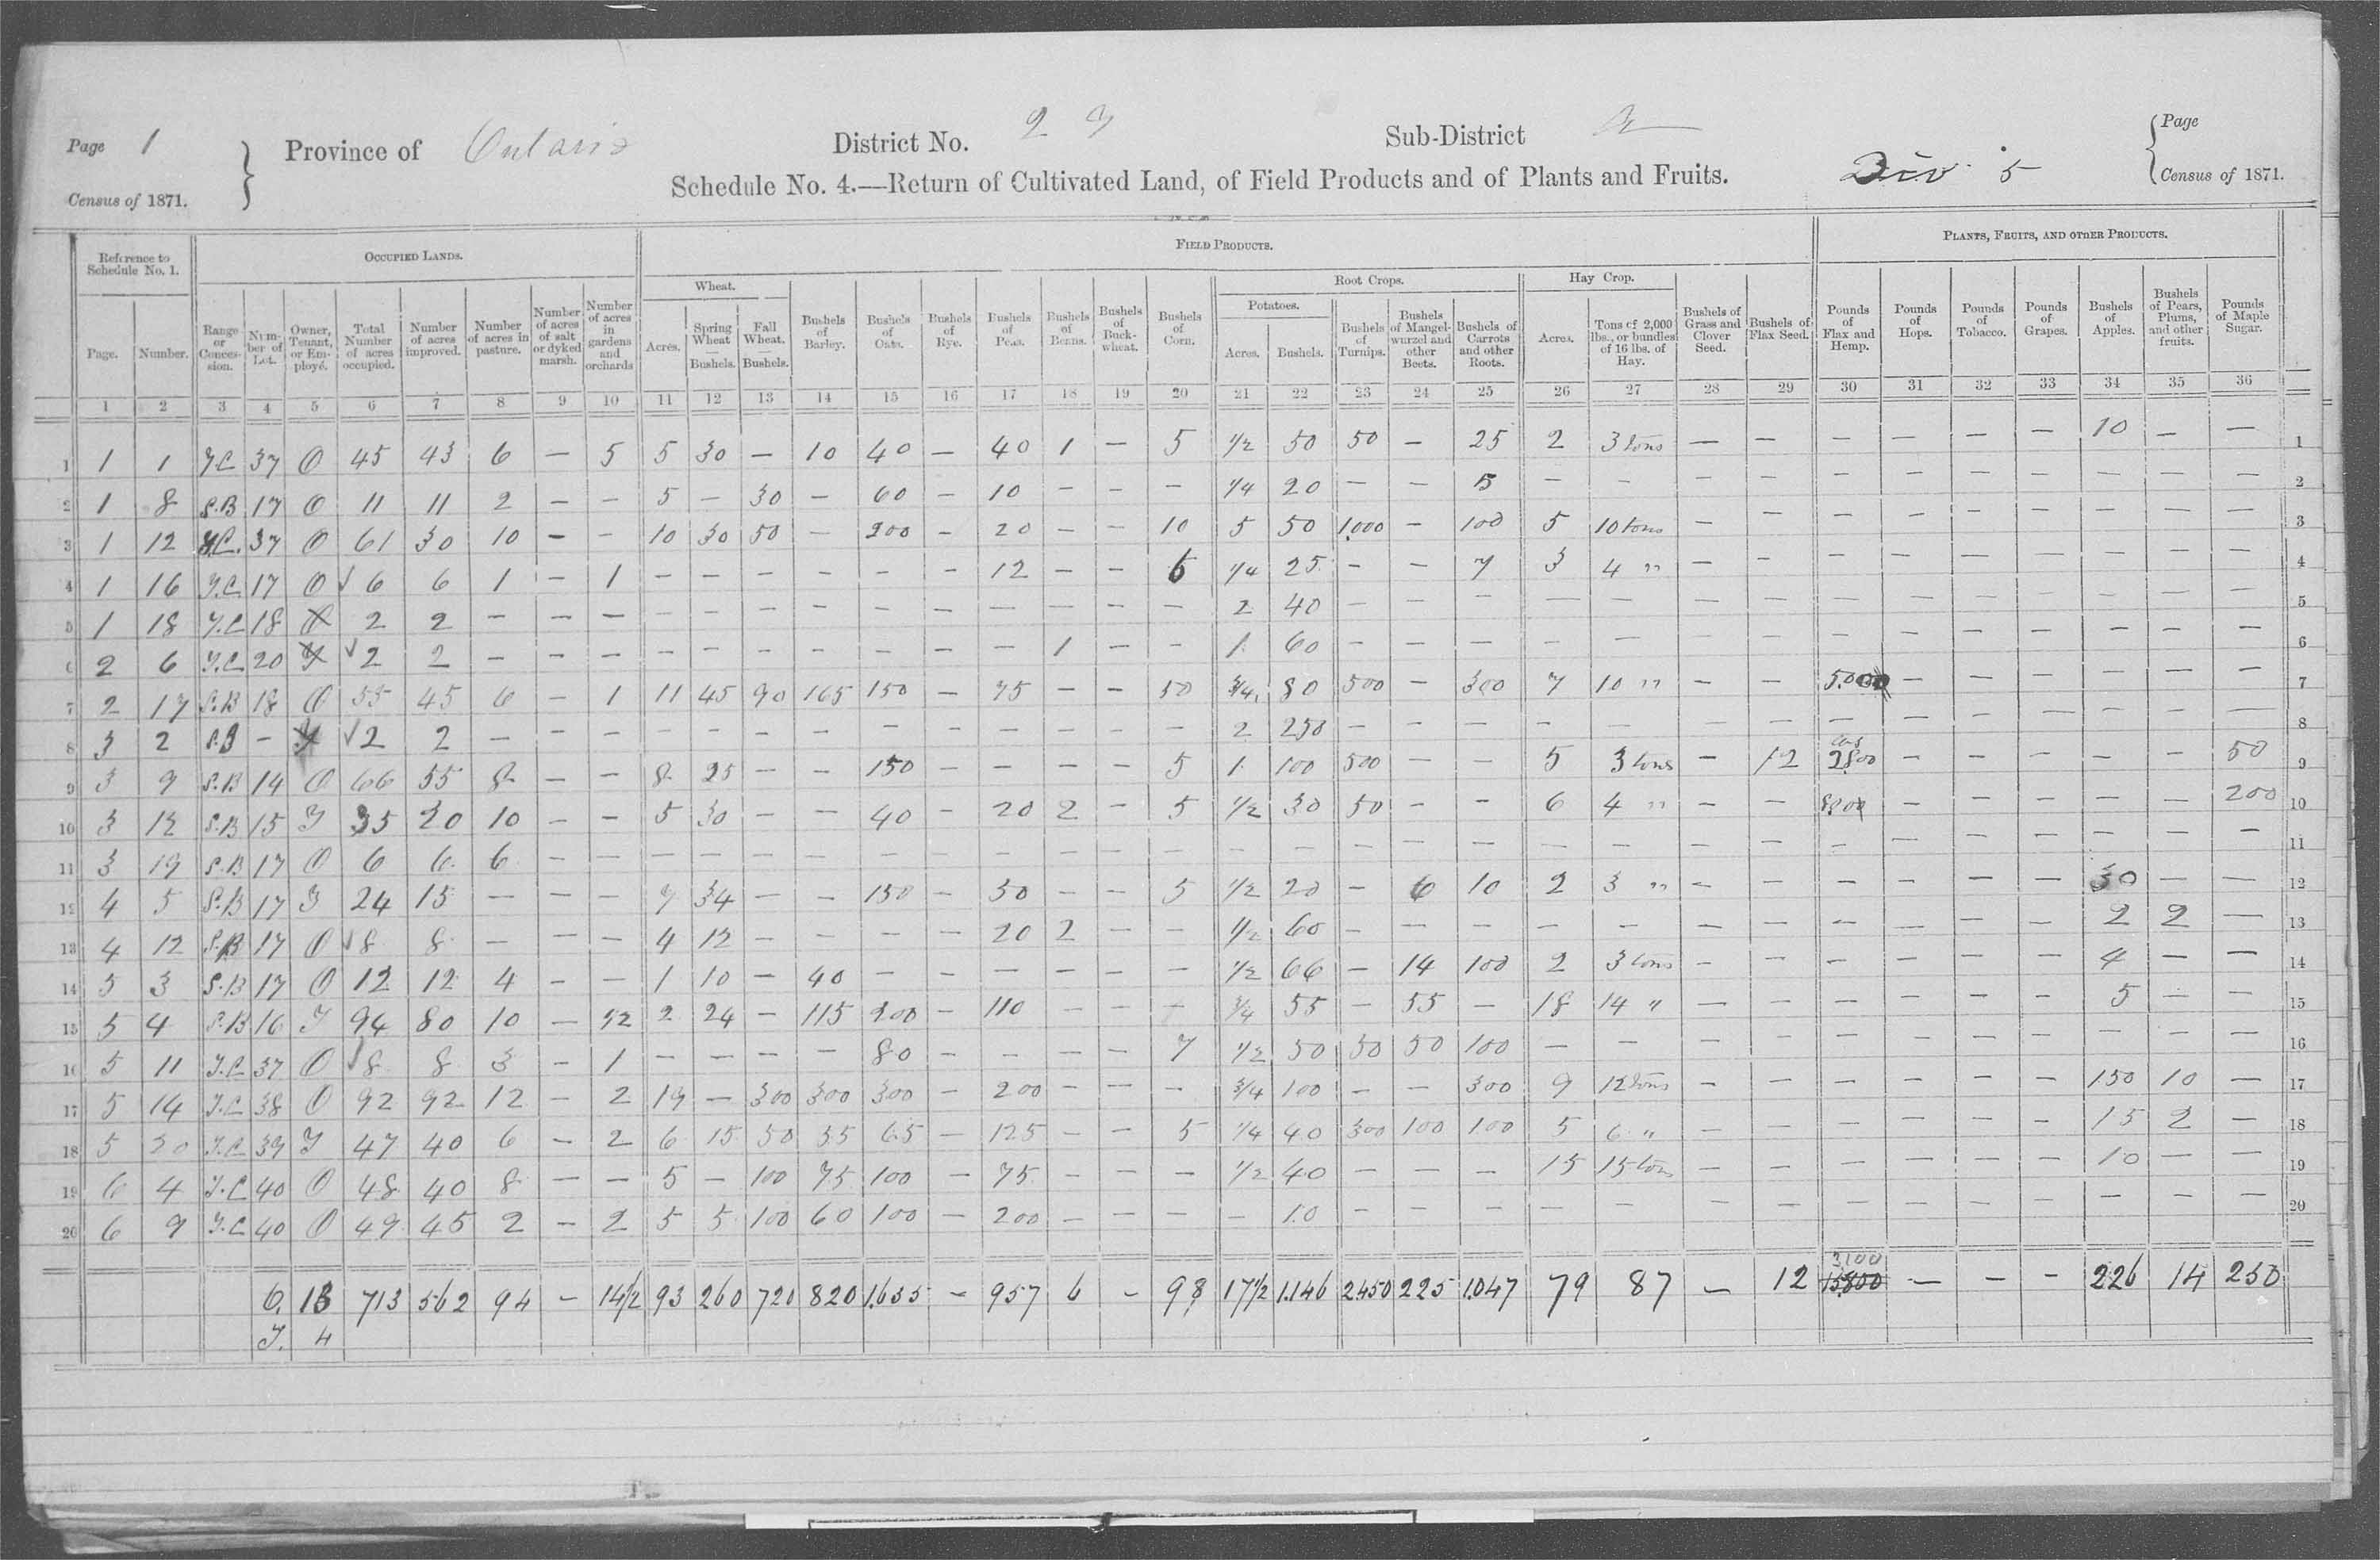 Page 1
Province of Ontario
District No. 23
Sub-District A
Page
Census of 1871.
Schedule No. 4.—Return of Cultivated Land, of Field Products and of Plants and Fruits.
Div. 5
Census of 1871.
Reference to Schedule No. 1.
OCCUPIED LANDS.
FIELD PRODUCTS.
PLANTS, FRUITS, AND OTHER PRODUCTS.
Wheat.
Root Crops.
Potatoes.
Hay Crop.
Page.
Number.
Range or Conces-sion.
Num-ber of Lot.
Owner, Tenant, or Em-ployé.
Total Number of acres occupied.
Number of acres improved.
Number of acres in pasture.
Number of acres of salt or dyked marsh.
Number of acres in gardens and orchards
Acres.
Spring Wheat — Bushels.
Fall Wheat. — Bushels.
Bushels of Barley.
Bushels of Oats.
Bushels of Rye.
Bushels of Peas.
Bushels of Beans.
Bushels of Buck-wheat.
Bushels of Corn.
Acres.
Bushels.
Bushels of Turnips.
Bushels of Mangel-wurzel and other Beets.
Bushels of Carrots and other Roots.
Acres.
Tons of 2,000 lbs., or bundles of 16 lbs. of Hay.
Bushels of Grass and Clover Seed.
Bushels of Flax Seed.
Pounds of Flax and Hemp.
Pounds of Hops.
Pounds of Tobacco.
Pounds of Grapes.
Bushels of Apples.
Bushels of Pears, Plums, and other fruits.
Pounds of Maple Sugar.
1 2 3 4 5 6 7 8 9 10 11 12 13 14 15 16 17 18 19 20 21 22 23 24 25 26 27 28 29 30 31 32 33 34 35 36
1 1 1 Y.C 37 O 45 43 6 — 5 5 30 — 10 40 — 40 1 — 5 1/2 50 50 — 25 2 3 tons — — — — — — 10 — — 1
2 1 8 S.B 17 O 11 11 2 — — 5 — 30 — 60 — 10 — — — 1/4 20 — — 5 — — — — — — — — — — — 2
3 1 12 Y.C. 37 O 61 30 10 — — 10 30 50 — 200 — 20 — — 10 5 50 1,000 — 100 5 10 tons — — — — — — — — — 3
4 1 16 Y.C. 17 O √ 6 6 1 — 1 — — — — — — 12 — — 6 1/4 25 — — 7 3 4 " — — — — — — — — — 4
5 1 18 Y.C 18 2 2 — — — — — — — — — — — — — 2 40 — — — — — — — — — — — — — — 5
6 2 6 Y.C 20 √ 2 2 — — — — — — — — — — 1 — — 1 60 — — — — — — — — — — — — — — 6
7 2 17 S.B 18 O 55 45 6 — 1 11 45 90 165 150 — 75 — — 50 3/4 80 500 — 300 7 10 " — — — — — — — — 7
8 3 2 S.B — √ 2 2 — — — — — — — — — — — — — 2 250 — — — — — — — — — — — — — — 8
9 3 9 S.B 14 O 66 55 8 — — 8 25 — — 150 — — — — 5 1 100 500 — — 5 3 tons — 12 — — — — — 50 9
10 3 12 S.B 15 T 35 20 10 — — 5 30 — — 40 — 20 2 — 5 1/2 30 50 — — 6 4 " — — — — — — — 200 10
11 3 19 S.B 17 O 6 6 6 — — — — — — — — — — — — — — — — — — — — — — — — — — — — 11
12 4 5 S.B 17 T 24 15 — — — 7 34 — — 150 — 50 — — 5 1/2 20 — 6 10 2 3 " — — — — — — 30 — — 12
13 4 12 S.B 17 O √ 8 8 — — — 4 12 — — — — 20 2 — — 1/2 60 — — — — — — — — — — — 2 2 — 13
14 5 3 S.B 17 O 12 12 4 — — 1 10 — 40 — — — — — — 1/2 66 — 14 100 2 3 tons — — — — — — 4 — — 14
15 5 4 S.B 16 T 94 80 10 — 1/2 2 24 — 115 200 — 110 — — — 3/4 55 — 55 — 18 14 " — — — — — — 5 — — 15
16 5 11 Y.C 37 O √ 8 8 3 — 1 — — — — 80 — — — — 7 1/2 50 50 50 100 — — — — — — — — — — — 16
17 5 14 Y.C 38 O 92 92 12 — 2 19 — 300 300 300 — 200 — — — 3/4 100 — — 300 9 12 tons — — — — — — 150 10 — 17
18 5 20 Y.C 39 T 47 40 6 — 2 6 15 50 55 65 — 125 — — 5 1/4 40 300 100 100 5 6 " — — — — — — 15 2 — 18
19 6 4 Y.C 40 O 48 40 8 — — 5 — 100 75 100 — 75 — — — 1/2 40 — — — 15 15 tons — — — — — — 10 — — 19
20 6 9 Y.C 40 O 49 45 2 — 2 5 5 100 60 100 — 200 — — — — 10 — — — — — — — — — — — — — — 20
O. 13 713 562 94 — 14 1/2 93 260 720 820 1.635 — 957 6 — 98 17 1/2 1.146 2450 225 1.047 79 87 — 12 3100 15,800 — — — 226 14 250
T. 4